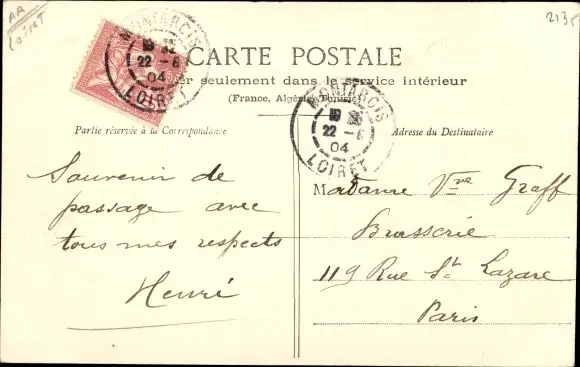 AR
Loiret
2135
CARTE POSTALE
er seulement dans le service intérieur
(France, Algérie, Tunisie)
MONTARGIS
22 - 6
04
LOIRET
MONTARGIS
22 - 6
04
LOIRET
Partie réservée à la Correspondance
Adresse du Destinataire
Souvenir de
passage avec
tous mes respects
Henri
Madame Vve Graff
Brasserie
119 Rue St Lazare
Paris